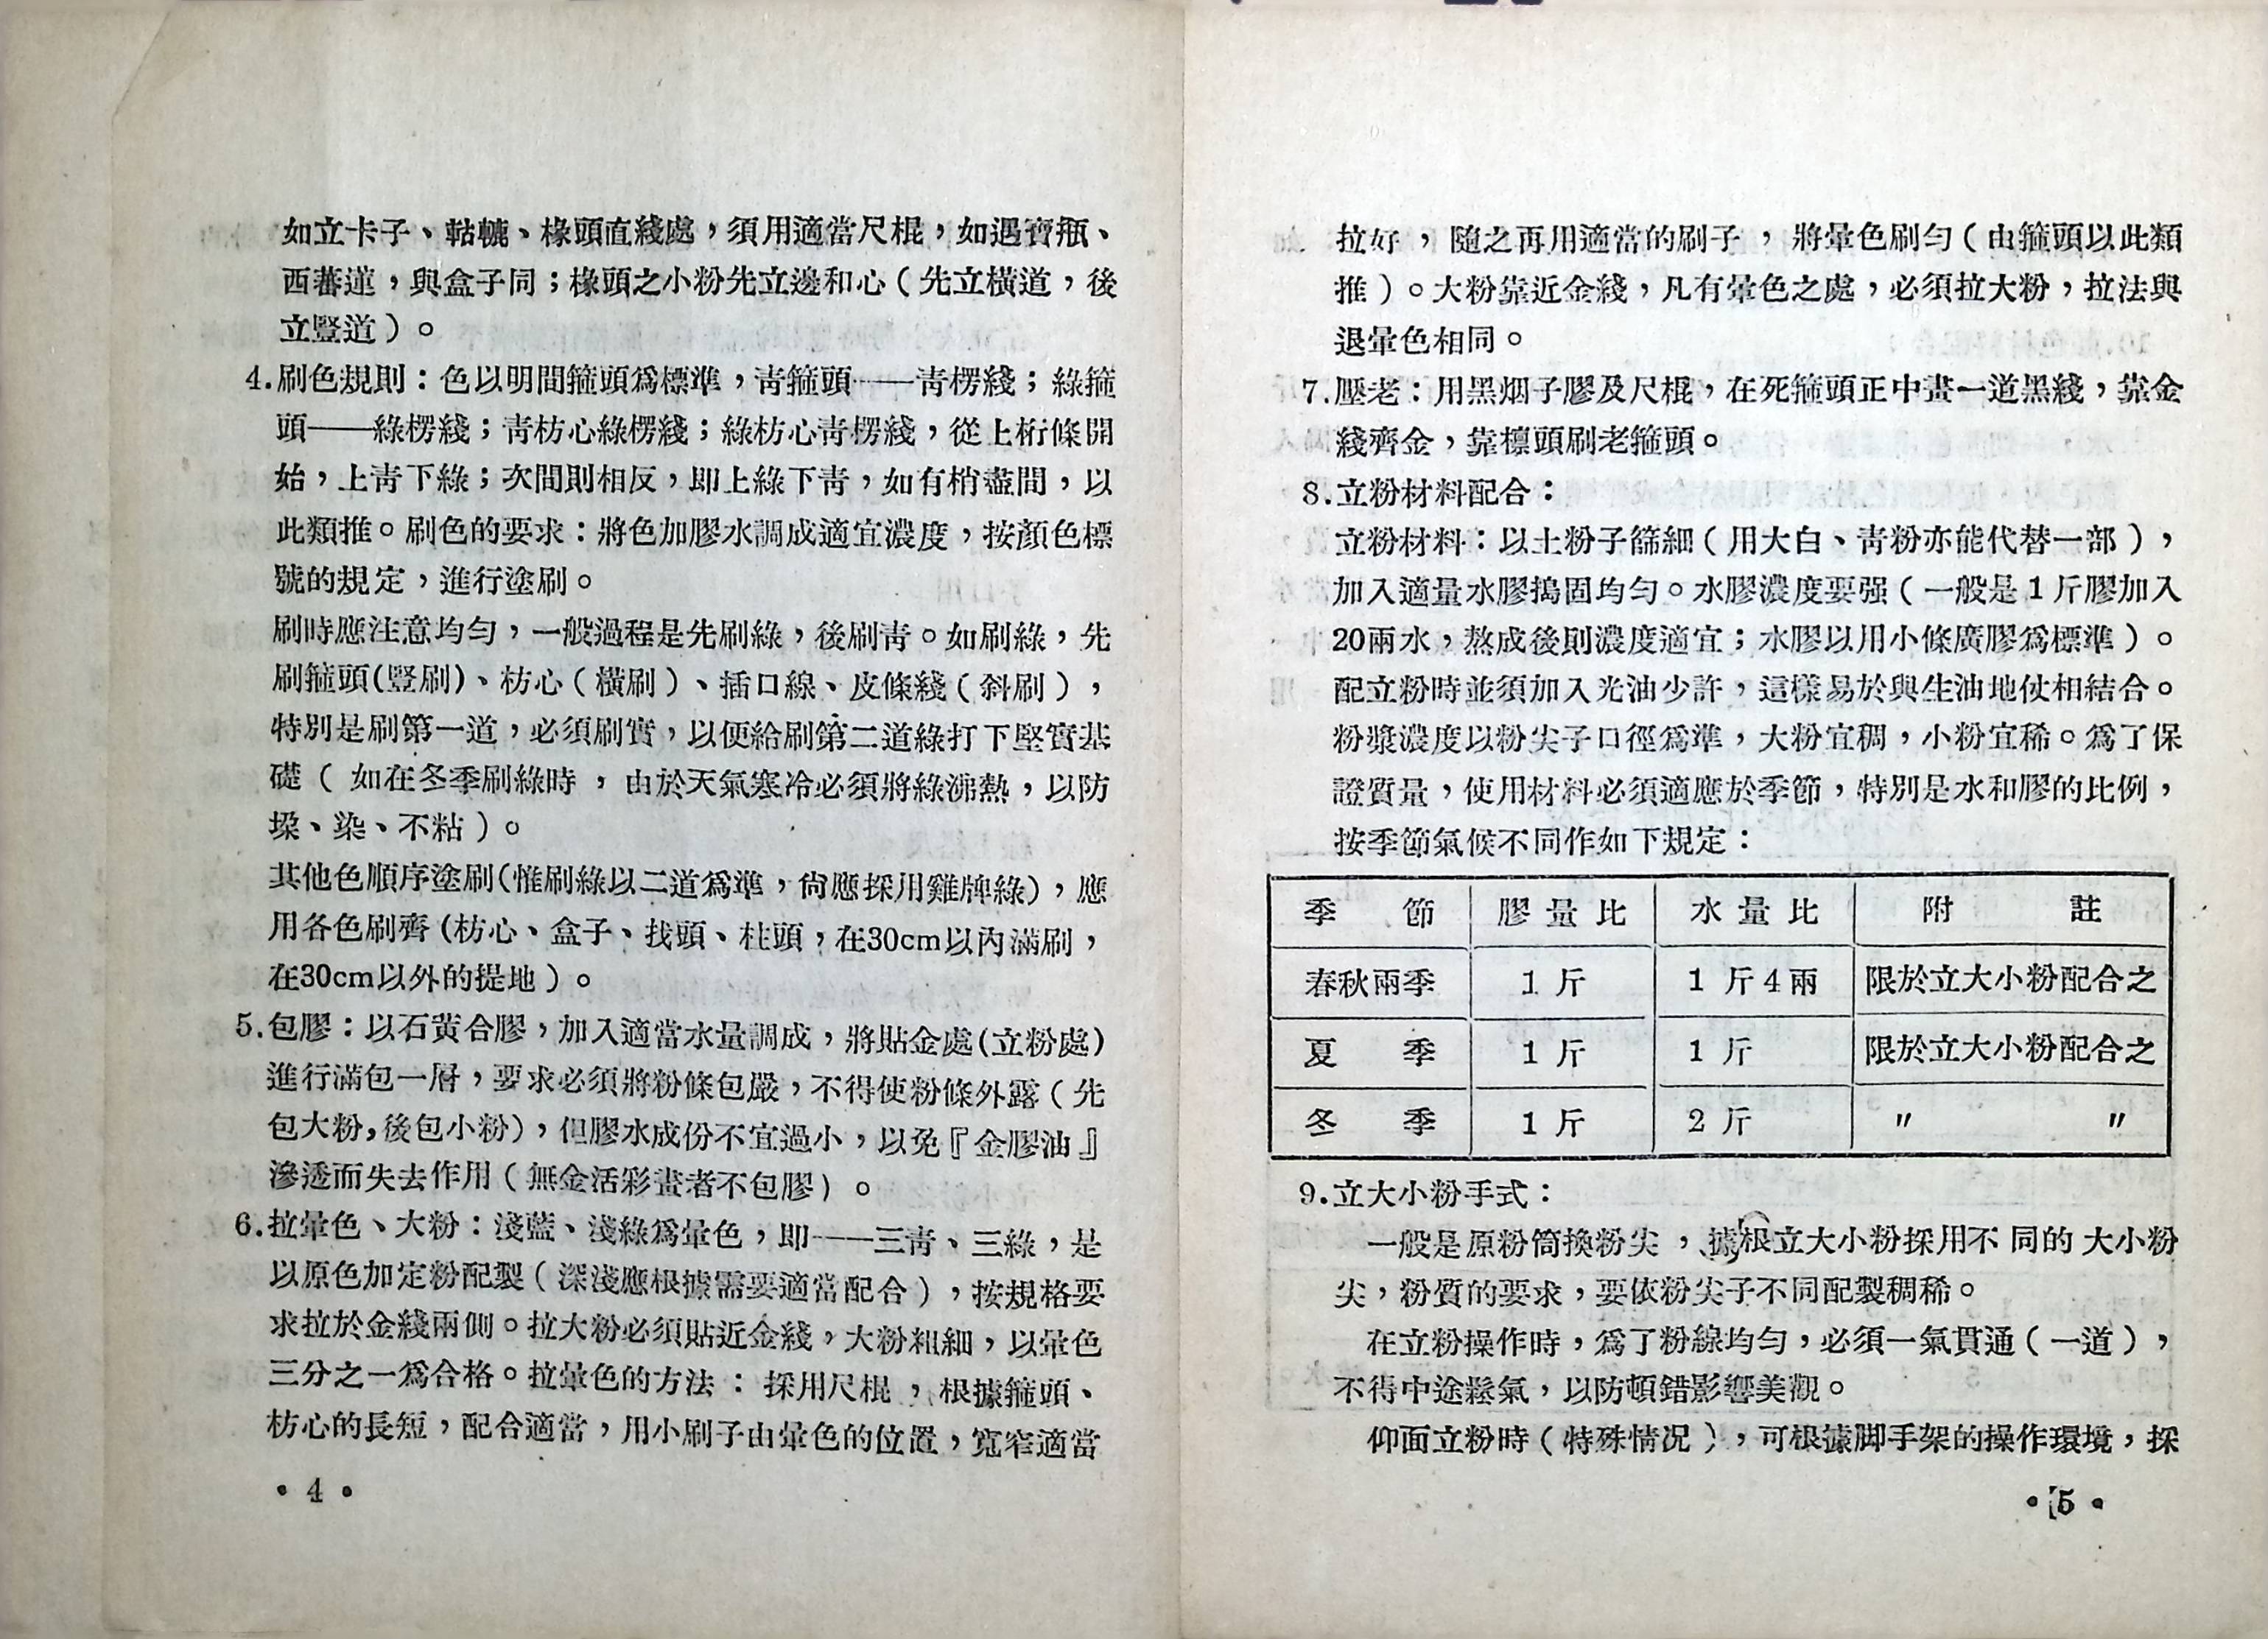 如立卡子、軲轆、椽頭直綫處，須用適當尺棍，如遇寶瓶、
西蕃蓮，與盒子同；椽頭之小粉先立邊和心（先立橫道，後
立豎道）。
4.刷色規則：色以明間箍頭爲標準，靑箍頭——靑楞綫；綠箍
頭——綠楞綫；靑枋心綠楞綫；綠枋心靑楞綫，從上桁條開
始，上靑下綠；次間則相反，即上綠下靑，如有梢盡間，以
此類推。刷色的要求：將色加膠水調成適宜濃度，按顏色標
號的規定，進行塗刷。
刷時應注意均勻，一般過程是先刷綠，後刷靑。如刷綠，先
刷箍頭(豎刷)、枋心（橫刷）、插口線、皮條綫（斜刷），
特別是刷第一道，必須刷實，以便給刷第二道綠打下堅實基
礎（如在冬季刷綠時，由於天氣寒冷必須將綠沸熱，以防
垛、染、不粘）。
其他色順序塗刷(惟刷綠以二道爲準，尙應採用雞牌綠)，應
用各色刷齊(枋心、盒子、找頭、柱頭，在30cm以內滿刷，
在30cm以外的提地）。
5.包膠：以石黃合膠，加入適當水量調成，將貼金處(立粉處)
進行滿包一層，要求必須將粉條包嚴，不得使粉條外露（先
包大粉,後包小粉)，但膠水成份不宜過小，以免『金膠油』
滲透而失去作用（無金活彩畫者不包膠）。
6.拉暈色、大粉：淺藍、淺綠爲暈色，即——三靑、三綠，是
以原色加定粉配製（深淺應根據需要適當配合），按規格要
求拉於金綫兩側。拉大粉必須貼近金綫。大粉粗細，以暈色
三分之一爲合格。拉暈色的方法：採用尺棍，根據箍頭、
枋心的長短，配合適當，用小刷子由暈色的位置，寬窄適當
• 4 •
拉好，隨之再用適當的刷子，將暈色刷勻（由箍頭以此類
推）。大粉靠近金綫，凡有暈色之處，必須拉大粉，拉法與
退暈色相同。
7.壓老：用黑烟子膠及尺棍，在死箍頭正中畫一道黑綫，靠金
綫齊金，靠檩頭刷老箍頭。
8.立粉材料配合：
立粉材料：以土粉子篩細（用大白、靑粉亦能代替一部），
加入適量水膠搗固均勻。水膠濃度要强（一般是1斤膠加入
20兩水，熬成後則濃度適宜；水膠以用小條廣膠爲標準）。
配立粉時並須加入光油少許，這樣易於與生油地仗相結合。
粉漿濃度以粉尖子口徑爲準，大粉宜稠，小粉宜稀。爲了保
證質量，使用材料必須適應於季節，特別是水和膠的比例，
按季節氣候不同作如下規定：
季 節 膠量比 水量比 附 註
春秋兩季 1斤 1斤4兩 限於立大小粉配合之
夏 季 1斤 1斤 限於立大小粉配合之
冬 季 1斤 2斤 〃 〃
9.立大小粉手式：
一般是原粉筒換粉尖，據根立大小粉採用不同的大小粉
尖，粉質的要求，要依粉尖子不同配製稠稀。
在立粉操作時，爲了粉線均勻，必須一氣貫通（一道），
不得中途鬆氣，以防頓錯影響美觀。
仰面立粉時（特殊情况），可根據脚手架的操作環境，採
• 5 •